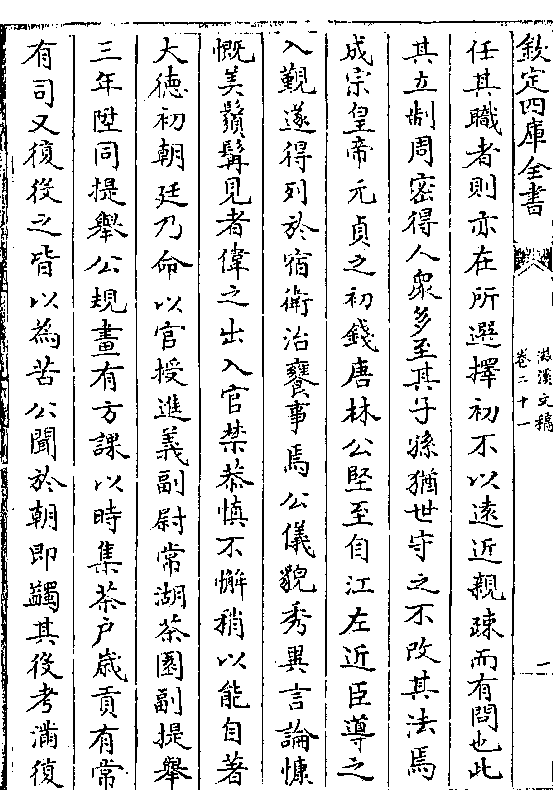 欽定四庫全書
滋溪文稿
卷二十一
二
任其職者則亦在所選擇初不以遠近親疎而有間也此
其立制周密得人衆多至其子孫猶世守之不改其法焉
成宗皇帝元貞之初錢唐林公堅至自江左近臣導之
入覲遂得列於宿衛治饔事焉公儀貌秀異言論慷
慨美鬚髯見者偉之出入官禁恭慎不懈稍以能自著
大德初朝廷乃命以官授進義副尉常湖茶園副提舉
三年陞同提舉公規畫有方課以時集茶户歳貢有常
有司又復役之皆以為苦公聞於朝即蠲其後考滿復